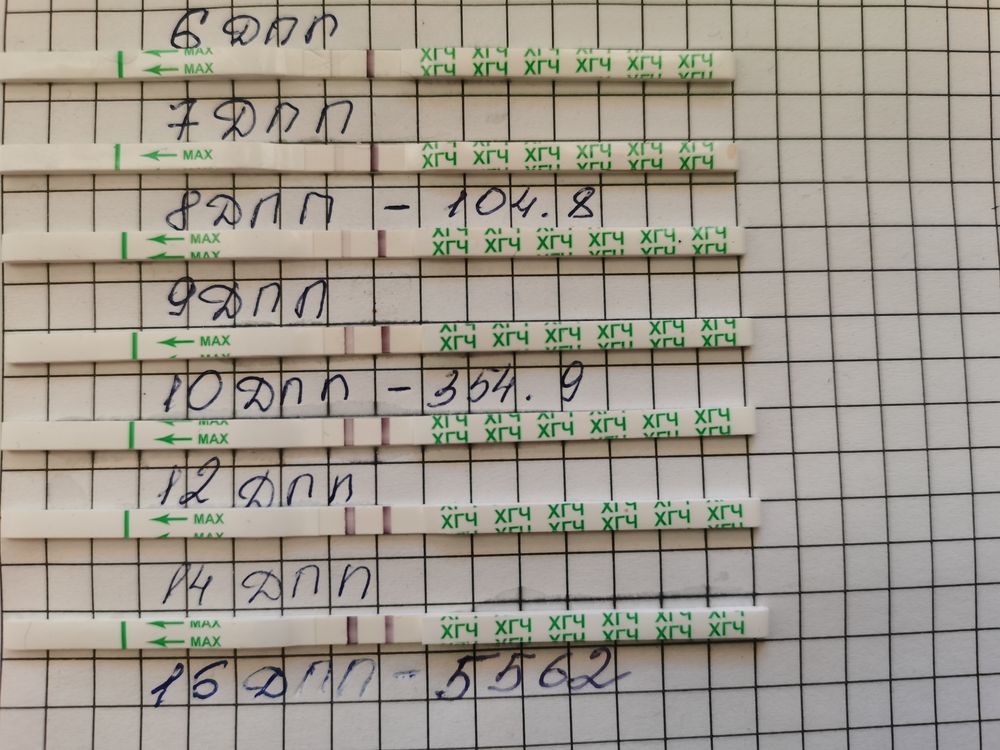 6 ДПП
MAX
MAX
ХГЧ ХГЧ ХГЧ ХГЧ ХГЧ ХГЧ
ХГЧ ХГЧ ХГЧ ХГЧ ХГЧ ХГЧ
7 ДПП
MAX
ХГЧ ХГЧ ХГЧ ХГЧ ХГЧ ХГЧ
ХГЧ ХГЧ ХГЧ ХГЧ ХГЧ ХГЧ
8 ДПП - 104.8
MAX
MAX
ХГЧ ХГЧ ХГЧ ХГЧ ХГЧ ХГЧ
ХГЧ ХГЧ ХГЧ ХГЧ ХГЧ ХГЧ
9 ДПП
MAX
MAX
ХГЧ ХГЧ ХГЧ ХГЧ ХГЧ ХГЧ
ХГЧ ХГЧ ХГЧ ХГЧ ХГЧ ХГЧ
10 ДПП - 354.9
MAX
MAX
ХГЧ ХГЧ ХГЧ ХГЧ ХГЧ ХГЧ
ХГЧ ХГЧ ХГЧ ХГЧ ХГЧ ХГЧ
12 ДПП
MAX
MAX
ХГЧ ХГЧ ХГЧ ХГЧ ХГЧ ХГЧ
ХГЧ ХГЧ ХГЧ ХГЧ ХГЧ ХГЧ
14 ДПП
MAX
MAX
ХГЧ ХГЧ ХГЧ ХГЧ ХГЧ ХГЧ
ХГЧ ХГЧ ХГЧ ХГЧ ХГЧ ХГЧ
15 ДПП - 5562